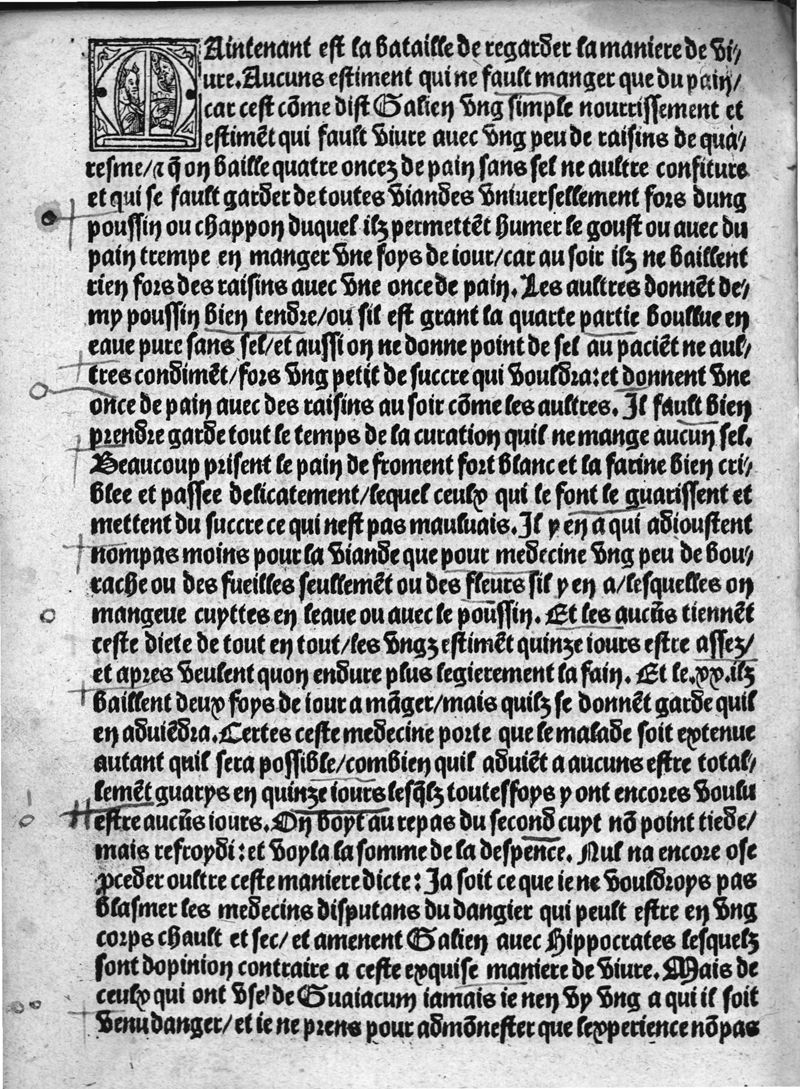 MAintenant est la bataille de regarder la maniere de vi/
ure. Aucuns estiment qui ne fault manger que du pain/
car cest cõme dist Galien vng simple nourrissement et
estimẽt qui fault viure avec vng peu de raisins de qua/
resme/⁊ q̃ on baille quatre oncez de pain sans sel ne aultre confiture
et qui se fault garder de toutes viandes vniuersellement fors dung
poussin ou chappon duquel ilz permettẽt humer le goust ou avec du
pain trempe en manger vne foys de iour/car au soir ilz ne baillent
rien fors des raisins avec vne once de pain. Les aultres donnẽt de/
my poussin bien tendre/ou sil est grant la quarte partie boullue en
eaue pure sans sel/et aussi on ne donne point de sel au paciẽt ne aul/
tres condimẽt/fors vng petit de succre qui vouldra: et donnent vne
once de pain avec des raisins au soir cõme les aultres. Il fault bien
prendre garde tout le temps de la curation quil ne mange aucun sel.
Beaucoup prisent le pain de froment fort blanc et la farine bien cri/
blee et passee delicatement/lequel ceulx qui le font le guarissent et
mettent du succre ce qui nest pas mauluais. Il y en a qui adioustent
nompas moins pour la viande que pour medecine vng peu de bou/
rache ou des fueilles seullemẽt ou des fleurs sil y en a/lesquelles on
mangeue cuyttes en leaue ou avec le poussin. Et les aucũs tiennẽt
ceste diete de tout en tout/les vngz estimẽt quinze iours estre assez/
et apres veulent quon endure plus legierement la fain. Et le.xx.ilz
baillent deux foys de iour a mãger/mais quilz se donnẽt garde quil
en aduiẽdra. Certes ceste medecine porte que le malade soit extenue
autant quil sera possible/combien quil aduiẽt a aucuns estre total/
lemẽt guarys en quinze iours lesq̃lz toutesfoys y ont encores voulu
estre aucũs iours. On boyt au repas du second cuyt nõ point tiede/
mais refroydi: et voyla la somme de la despence. Nul na encore ose
ꝓceder oultre ceste maniere dicte: Ja soit ce que ie ne vouldroys pas
blasmer les medecins disputans du dangier qui peult estre en vng
corps chault et sec/ et amenent Galien avec Hippocrates lesquelz
sont dopinion contraire a ceste exquise maniere de viure. Mais de
ceulx qui ont vse de Guaiacum iamais ie nen vy vng a qui il soit
venu danger/et ie ne prens pour admõnester que lexperience nõ pas